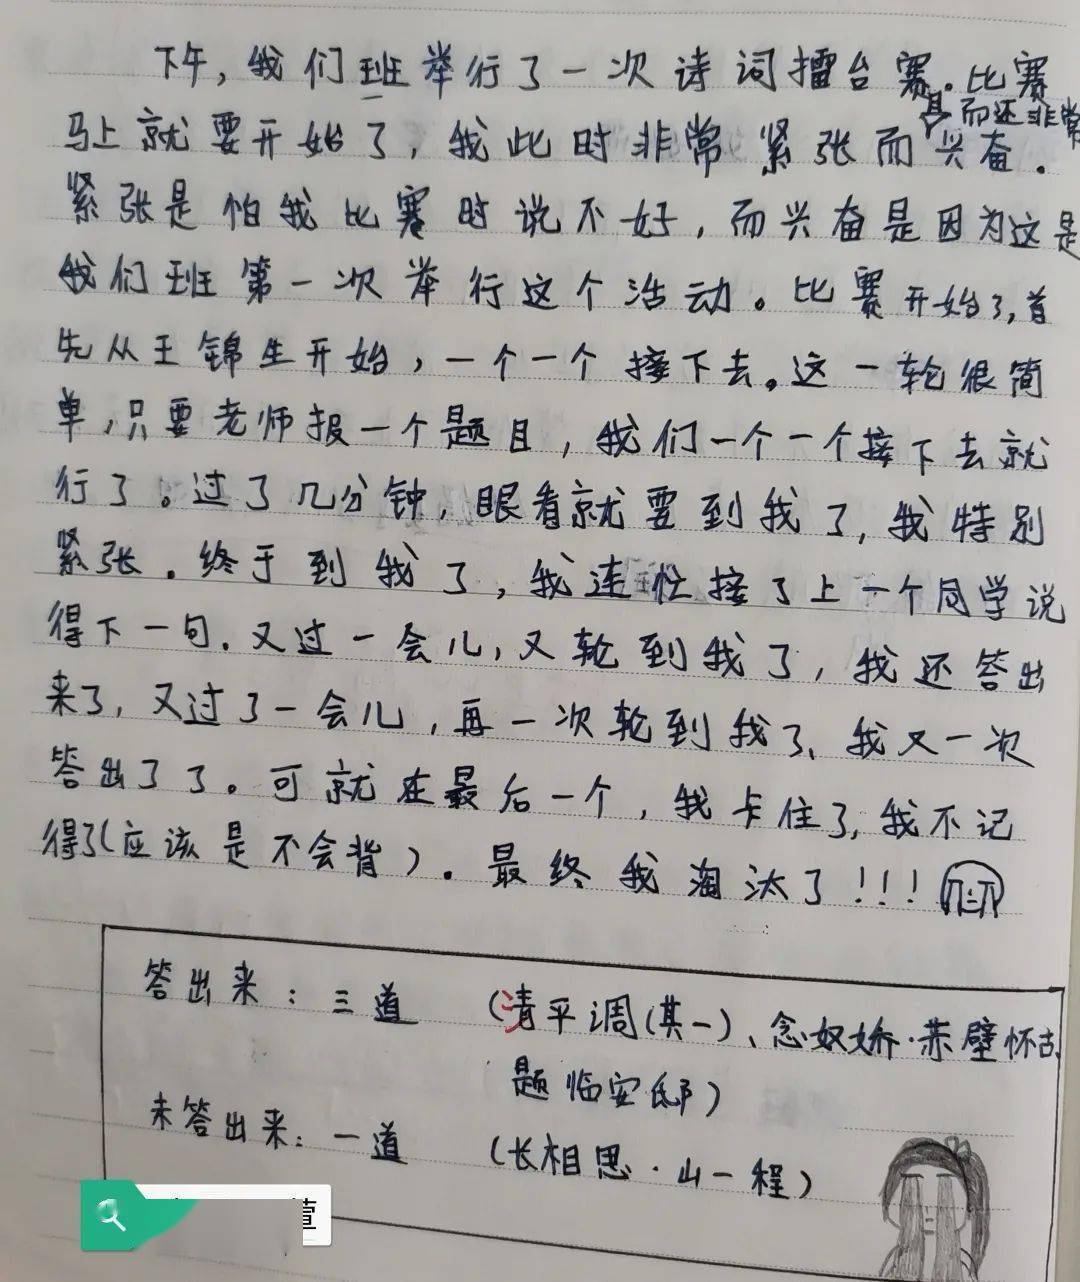 下午，我们班举行了一次诗词擂台赛。比赛
甚而还非常
马上就要开始了，我此时非常紧张而兴奋。
紧张是怕我比赛时说不好，而兴奋是因为这是
我们班第一次举行这个活动。比赛开始了，首
先从王锦生开始，一个一个接下去。这一轮很简
单，只要老师报一个题目，我们一个一个接下去就
行了。过了几分钟，眼看就要到我了，我特别
紧张。终于到我了，我连忙接了上一个同学说
得下一句。又过一会儿，又轮到我了，我还答出
来了，又过了一会儿，再一次轮到我了、我又一次
答出了了。可就在最后一个，我卡住了，我不记
得了（应该是不会背）。最终我淘汰了！！！
答出来：三道 （清平调（其一）、念奴娇·赤壁怀古、
题临安邸）
未答出来：一道 （长相思·山一程）
萱